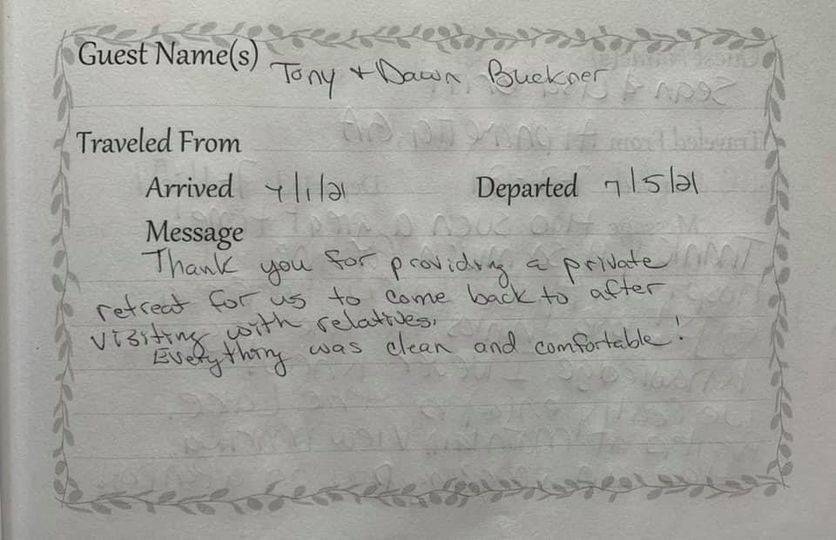 Guest Name(s) Tony + Dawn Buckner
Traveled From
Arrived 7/1/21 Departed 7/5/21
Message
Thank you for providing a private
retreat for us to come back to after
visiting with relatives.
Everything was clean and comfortable!